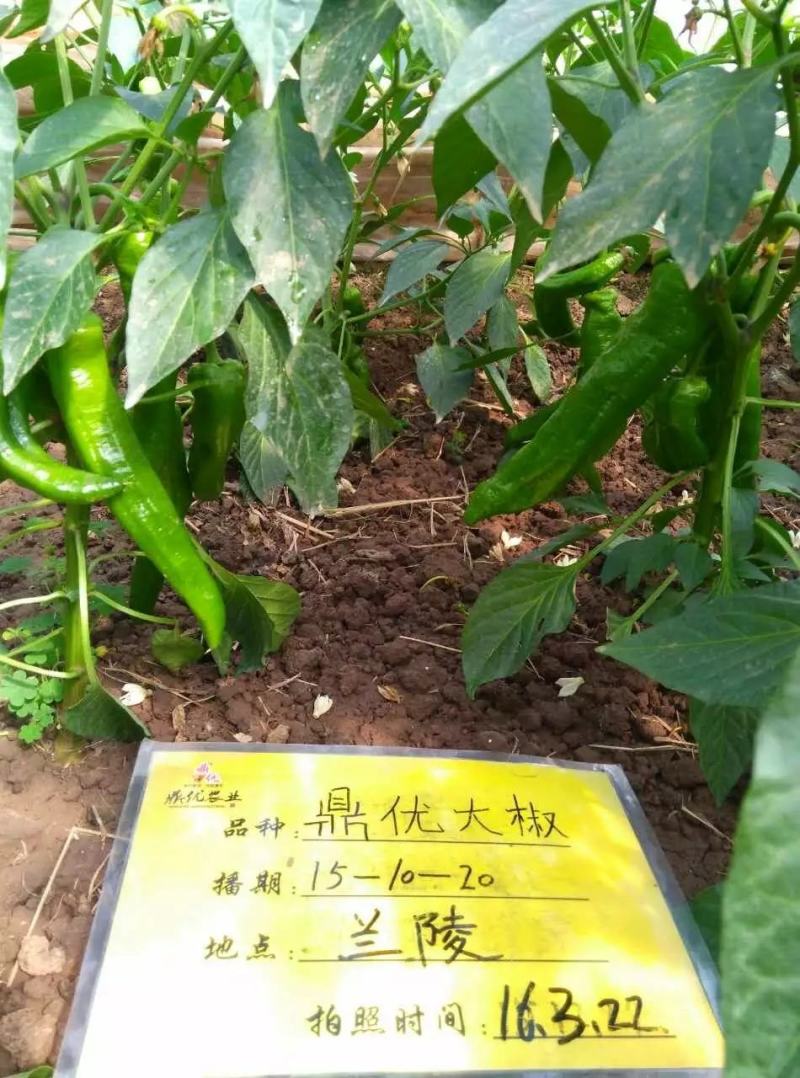 鼎优农业
品种：鼎优大椒
播期：15-10-20
地点：兰陵
拍照时间：16.3.22